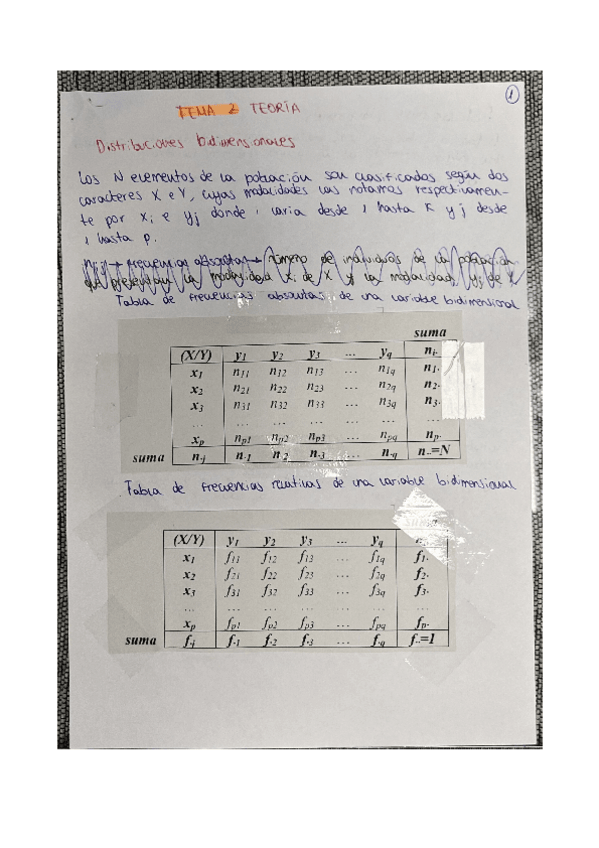 1
TEMA 2 TEORÍA
Distribuciones bidimensionales
Los N elementos de la población son clasificados según dos
caracteres X e Y, cuyas modalidades las notamos respectivamen-
te por Xi e Yj donde i varia desde 1 hasta K y j desde
1 hasta p.
nij → frecuencias absolutas → número de individuos de la población
que presentan la modalidad Xi de X y la modalidad yj de Y
Tabla de frecuencias absolutas de una variable bidimensional
suma
(X/Y) y1 y2 y3 ... yq ni.
x1 n11 n12 n13 ... n1q n1.
x2 n21 n22 n23 ... n2q n2.
x3 n31 n32 n33 ... n3q n3.
... ... ... ... ... ... ...
xp np1 np2 np3 ... npq np.
suma n.j n.1 n.2 n.3 ... n.q n..=N
Tabla de frecuencias relativas de una variable bidimensional
suma
(X/Y) y1 y2 y3 ... yq
x1 f11 f12 f13 ... f1q f1.
x2 f21 f22 f23 ... f2q f2.
x3 f31 f32 f33 ... f3q f3.
... ... ... ... ... ... ...
xp fp1 fp2 fp3 ... fpq fp.
suma f.j f.1 f.2 f.3 ... f.q f..=1